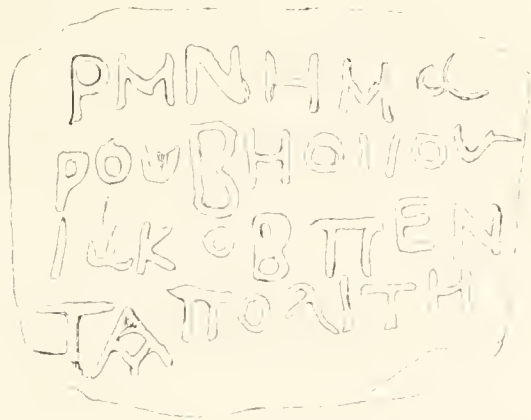 ΡΜΝΗΜΑ
ΡΟΥΒΗΟΙΙΟΥ
ΙΑΚΟΒΠΕΝ
ΤΑΠΟΛΙΤΗ